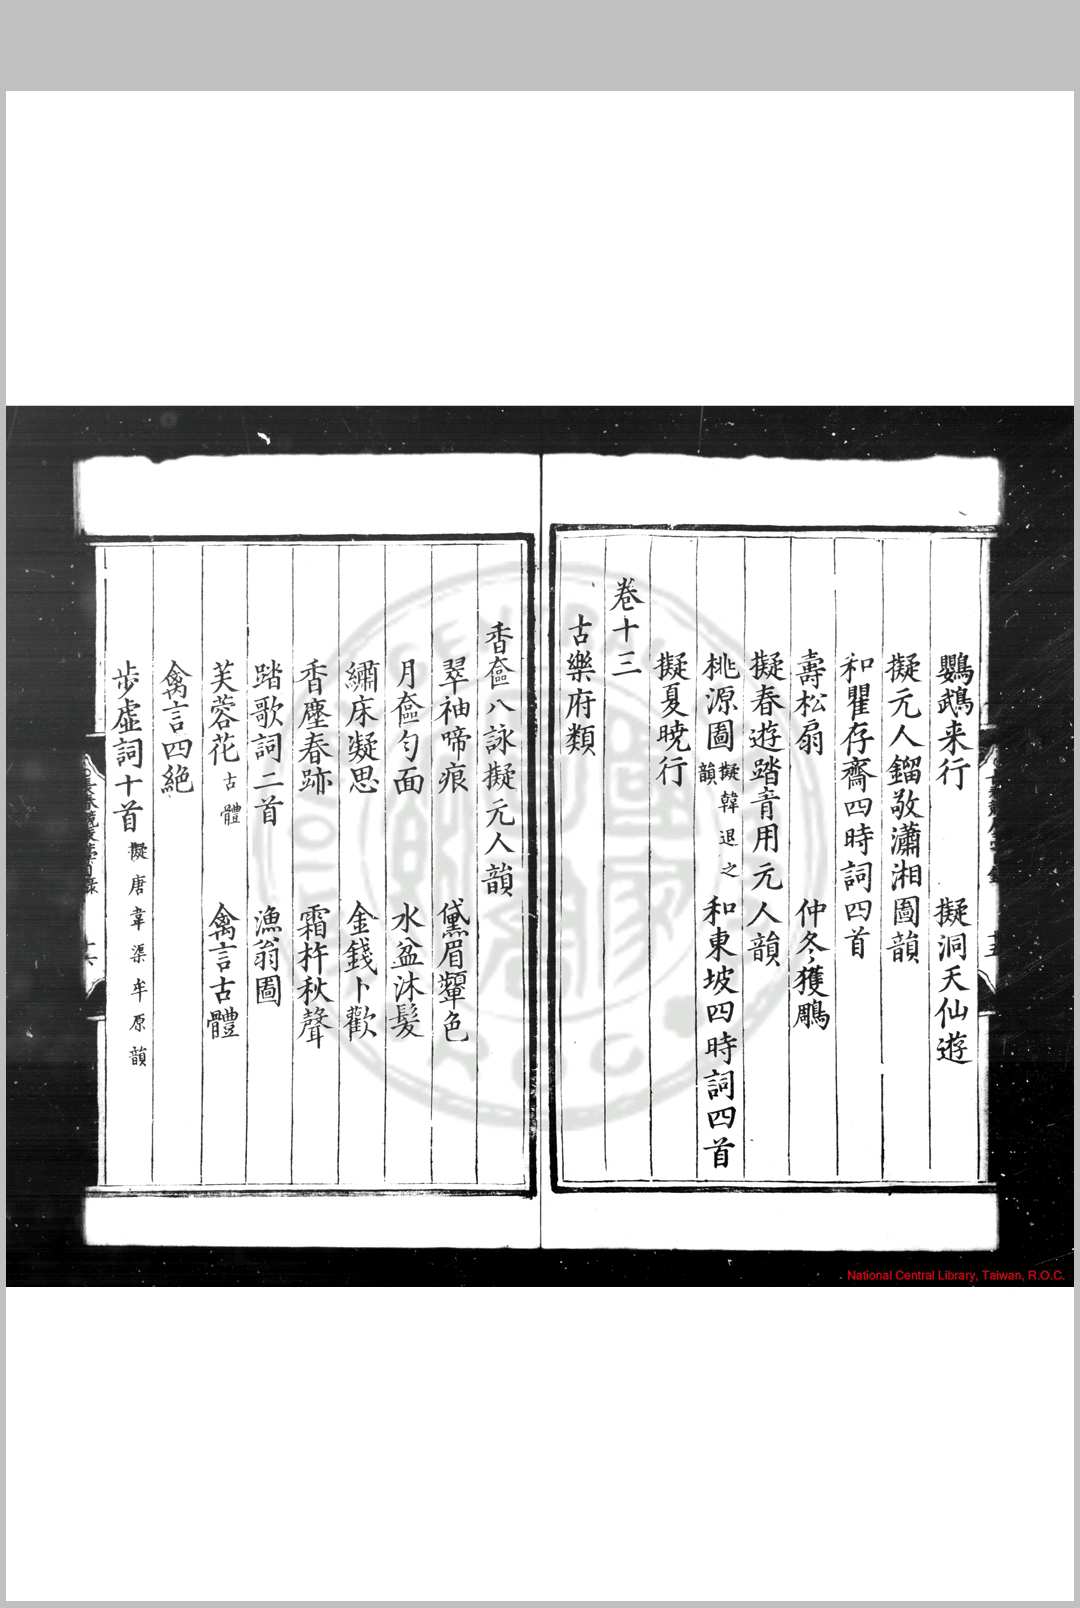 鸚鵡来行　擬洞天仙遊
擬元人鎦敬瀟湘圖韻
和瞿存齋四時詞四首
壽松扇　仲冬獲鵰
擬春遊踏青用元人韻
桃源圖擬韓退之韻　和東坡四時詞四首
擬夏曉行
卷十三
古樂府類
香奩八詠擬元人韻
翠袖啼痕　黛眉顰色
月奩勻面　水盆沐髮
繡床凝思　金錢卜歡
香塵春跡　霜杵秋聲
踏歌詞二首　漁翁圖
芙蓉花古體　禽言古體
禽言四絶
步虛詞十首擬唐韋渠牟原韻
National Central Library, Taiwan, R.O.C.